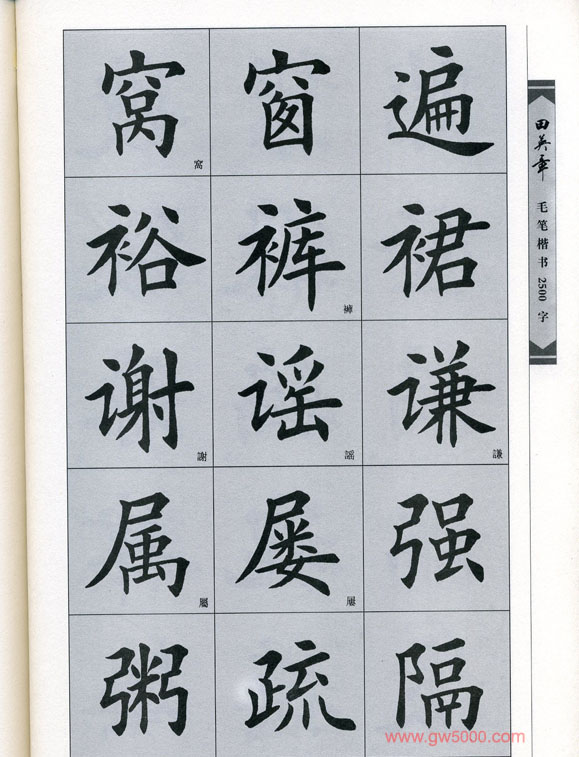 遍 窗 窝 窩
裙 裤 褲 裕
谦 謙 谣 謡 谢 謝
强 屡 屢 属 屬
隔 疏 粥
田英章
毛笔楷书2500字
www.gw5000.com